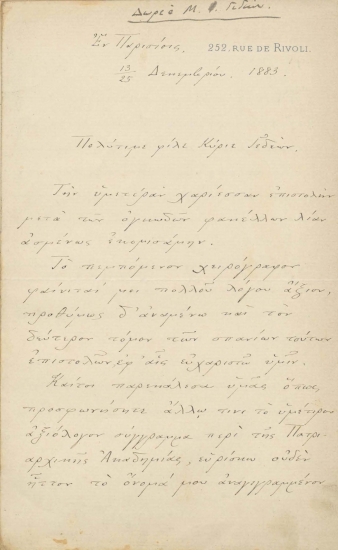 Δωρεά Μ. Ι. Γεδεών.
Ἐν Παρισίοις, 252, RUE DE RIVOLI.
13/25 Δεκεμβρίου, 1883.
Πολύτιμε φίλε Κύριε Γεδεών.
Τὴν ὑμετέραν χαρίεσσαν ἐπιστολὴν
μετὰ τῶν φακέλλων λίαν
ἀσμένως ἐκομισάμην.
Τὸ πεμπόμενον χειρόγραφον
φαίνεταί μοι πολλοῦ λόγου ἄξιον,
προθύμως δ' ἀναμένω καὶ τὸν
δεύτερον τόμον τῶν σπανίων τούτων
ἐπιστολῶν, ἐφ' αἷς εὐχαριστῶ ὑμῖν.
Καίτοι παρεκάλεσα ὑμᾶς ὅπως
προσφωνήσητε ἄλλῳ τινὶ τὸ ὑμέτερον
ἀξιόλογον σύγγραμμα περὶ τῆς Πατρι-
αρχικῆς Ἀκαδημίας, εὑρίσκω οὐδὲν
ἧττον τὸ ὄνομά μου ἀναγεγραμμένον